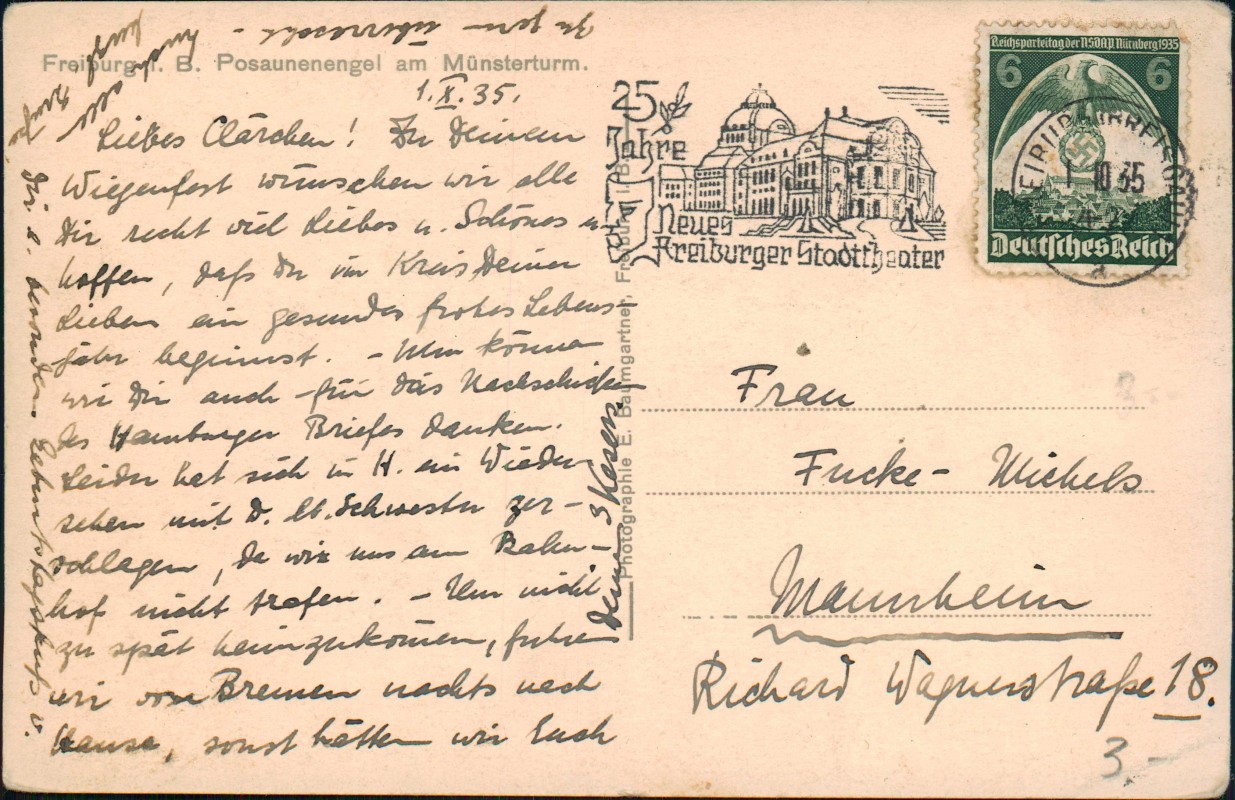 Freiburg i. B. Posaunenengel am Münsterturm.
1.X.35.
Liebes Clärchen! Zu Deinem
Wiegenfest wünschen wir alle
Dir recht viel Liebes u. Schönes u.
hoffen, daß Du im Kreis Deiner
Lieben ein gesundes frohes Lebens-
jahr beginnst. - Nun können
wir Dir auch für das Nachschicken
des Hamburger Briefes danken.
Leider hat sich in H. ein Wieder
sehen mit D. lb. Schwester zer-
schlagen, da wir uns am Bahn-
hof nicht trafen. - Um nicht
zu spät heimzukommen, fuhren
wir von Bremen nachts nach
Hause, sonst hätten wir Euch
überrascht -
Dir e. besonderen Geburtstagskuß v.
Deinen 3 Hasen.
Photographie E. Baumgartner, Freiburg i. B.
25
Jahre
Neues
Freiburger Stadttheater
Reichsparteitag der NSDAP. Nürnberg 1935
6 6
Deutsches Reich
1.10.35
a
Frau
Fucke-Michels
Mannheim
Richard Wagnerstraße 18.
3.-